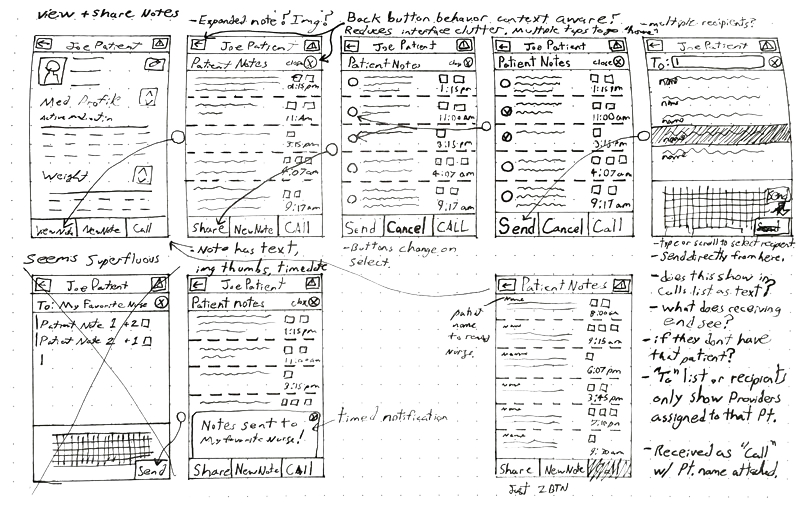 view + share Notes
- Expanded note? Img?
Back button behavior, context aware?
Reduces interface clutter. Multiple tips to go home?
- multiple recipients?
Joe Patient
Med Profile
Active medication
Weight
View Note New Note Call
Joe Patient
Patient Notes close
1:15 pm
11:AM
3:15 pm
4:07 am
9:17 am
Share New Note CALL
- Note has text,
img thumbs, timedate
Joe Patient
Patient Notes close
1:15 pm
11:00 am
3:15 pm
4:07 am
9:17 am
Send Cancel CALL
- Buttons change on
select.
Joe Patient
Patient Notes close
1:15 pm
11:00 am
3:15 pm
4:07 am
9:17 am
Send Cancel Call
Joe Patient
To:
name
name
name
name
name
Send
- type or scroll to select recipient.
- Send directly from here.
- does this show in
Calls list as text?
- what does receiving
end see?
- if they don't have
that patient?
- "To" list or recipients
only show Providers
assigned to that Pt.
- Received as "Call"
w/ Pt. name attached.
Seems Superfluous
Joe Patient
To: My Favorite Nurse
Patient Note 1 +2
Patient Note 2 +1
Send
Joe Patient
Patient notes close
1:15 pm
11:00 am
3:15 pm
Notes sent to
My favorite Nurse!
Share New Note CALL
timed notification
patient
name
to
Nurse.
Patient Notes
Name
8:00 am
Name
9:15 am
Name
6:07 pm
Name
3:45 pm
Name
7:10 pm
Name
9:30 am
Share New Note Call
Just 2 BTN